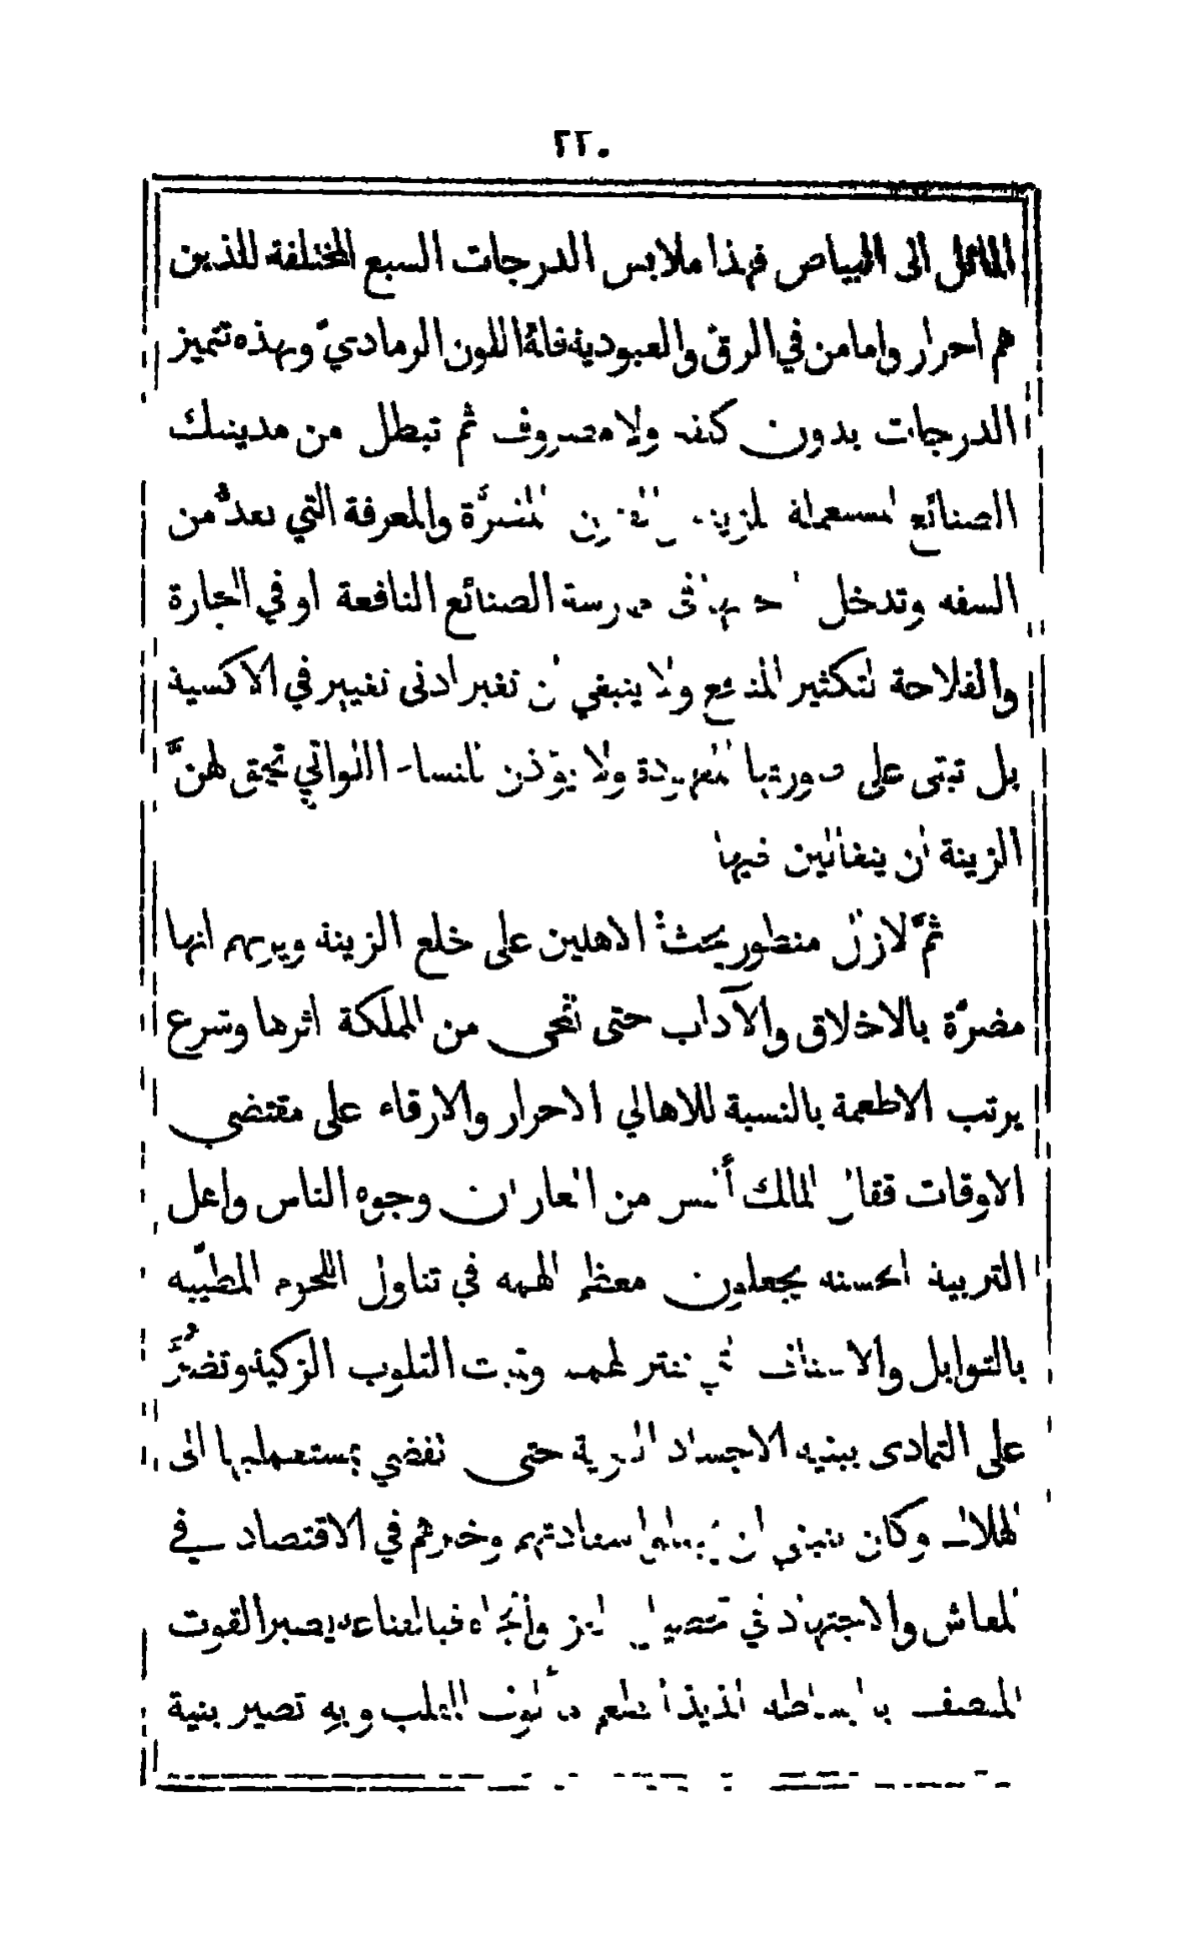 ٢٢٠
المائل الى البياض فهذا ملابس الدرجات السبع المختلفة للذين
هم احرار واما من في الرق والعبودية فلهُ اللون الرمادي وبهذه تتميز
الدرجات بدون كلفه ولا مصروف ثم تبطل من مدينتك
الصنائع المستعملة للزينة المضرَّة والمعرفة التي تعدُّ من
السفه وتدخل مدرسة الصنائع النافعة او في التجارة
والفلاحة لتكثير المنافع ولا ينبغي ان تغير ادنى تغيير في الاكسية
بل تبقى على صورتها المعهودة ولا يؤذن للنساء اللواتي تحق لهنَّ
الزينة ان يتغالين فيها
ثمَّ لازال منطور يحث الاهلين على خلع الزينة ويريهم انها
مضرَّة بالاخلاق والآداب حتى تمحى من المملكة اثرها وشرع
يرتب الاطعمة بالنسبة للاهالي الاحرار والارقاء على مقتضى
الاوقات فقال المالك أليس من العار ان وجوه الناس واهل
التربية الحسنه يجعلون معظم الهمه في تناول اللحوم المطيَّبه
بالتوابل والاصناف التي تفتر الهمم وتميت القلوب الزكية وتضُرَّ
على التمادى ببنيه الاجساد القوية حتى تفضي بمستعمليها الى
الهلاك وكان ينبغي ان يجعلوا سعادتهم وخيرهم في الاقتصاد في
المعاش والاجتهاد في تحصيل العز والجاه فبالقناعه يصير القوت
المتصف بالبساطه لذيذ الطعم مألوف القلب وبهِ تصير بنية